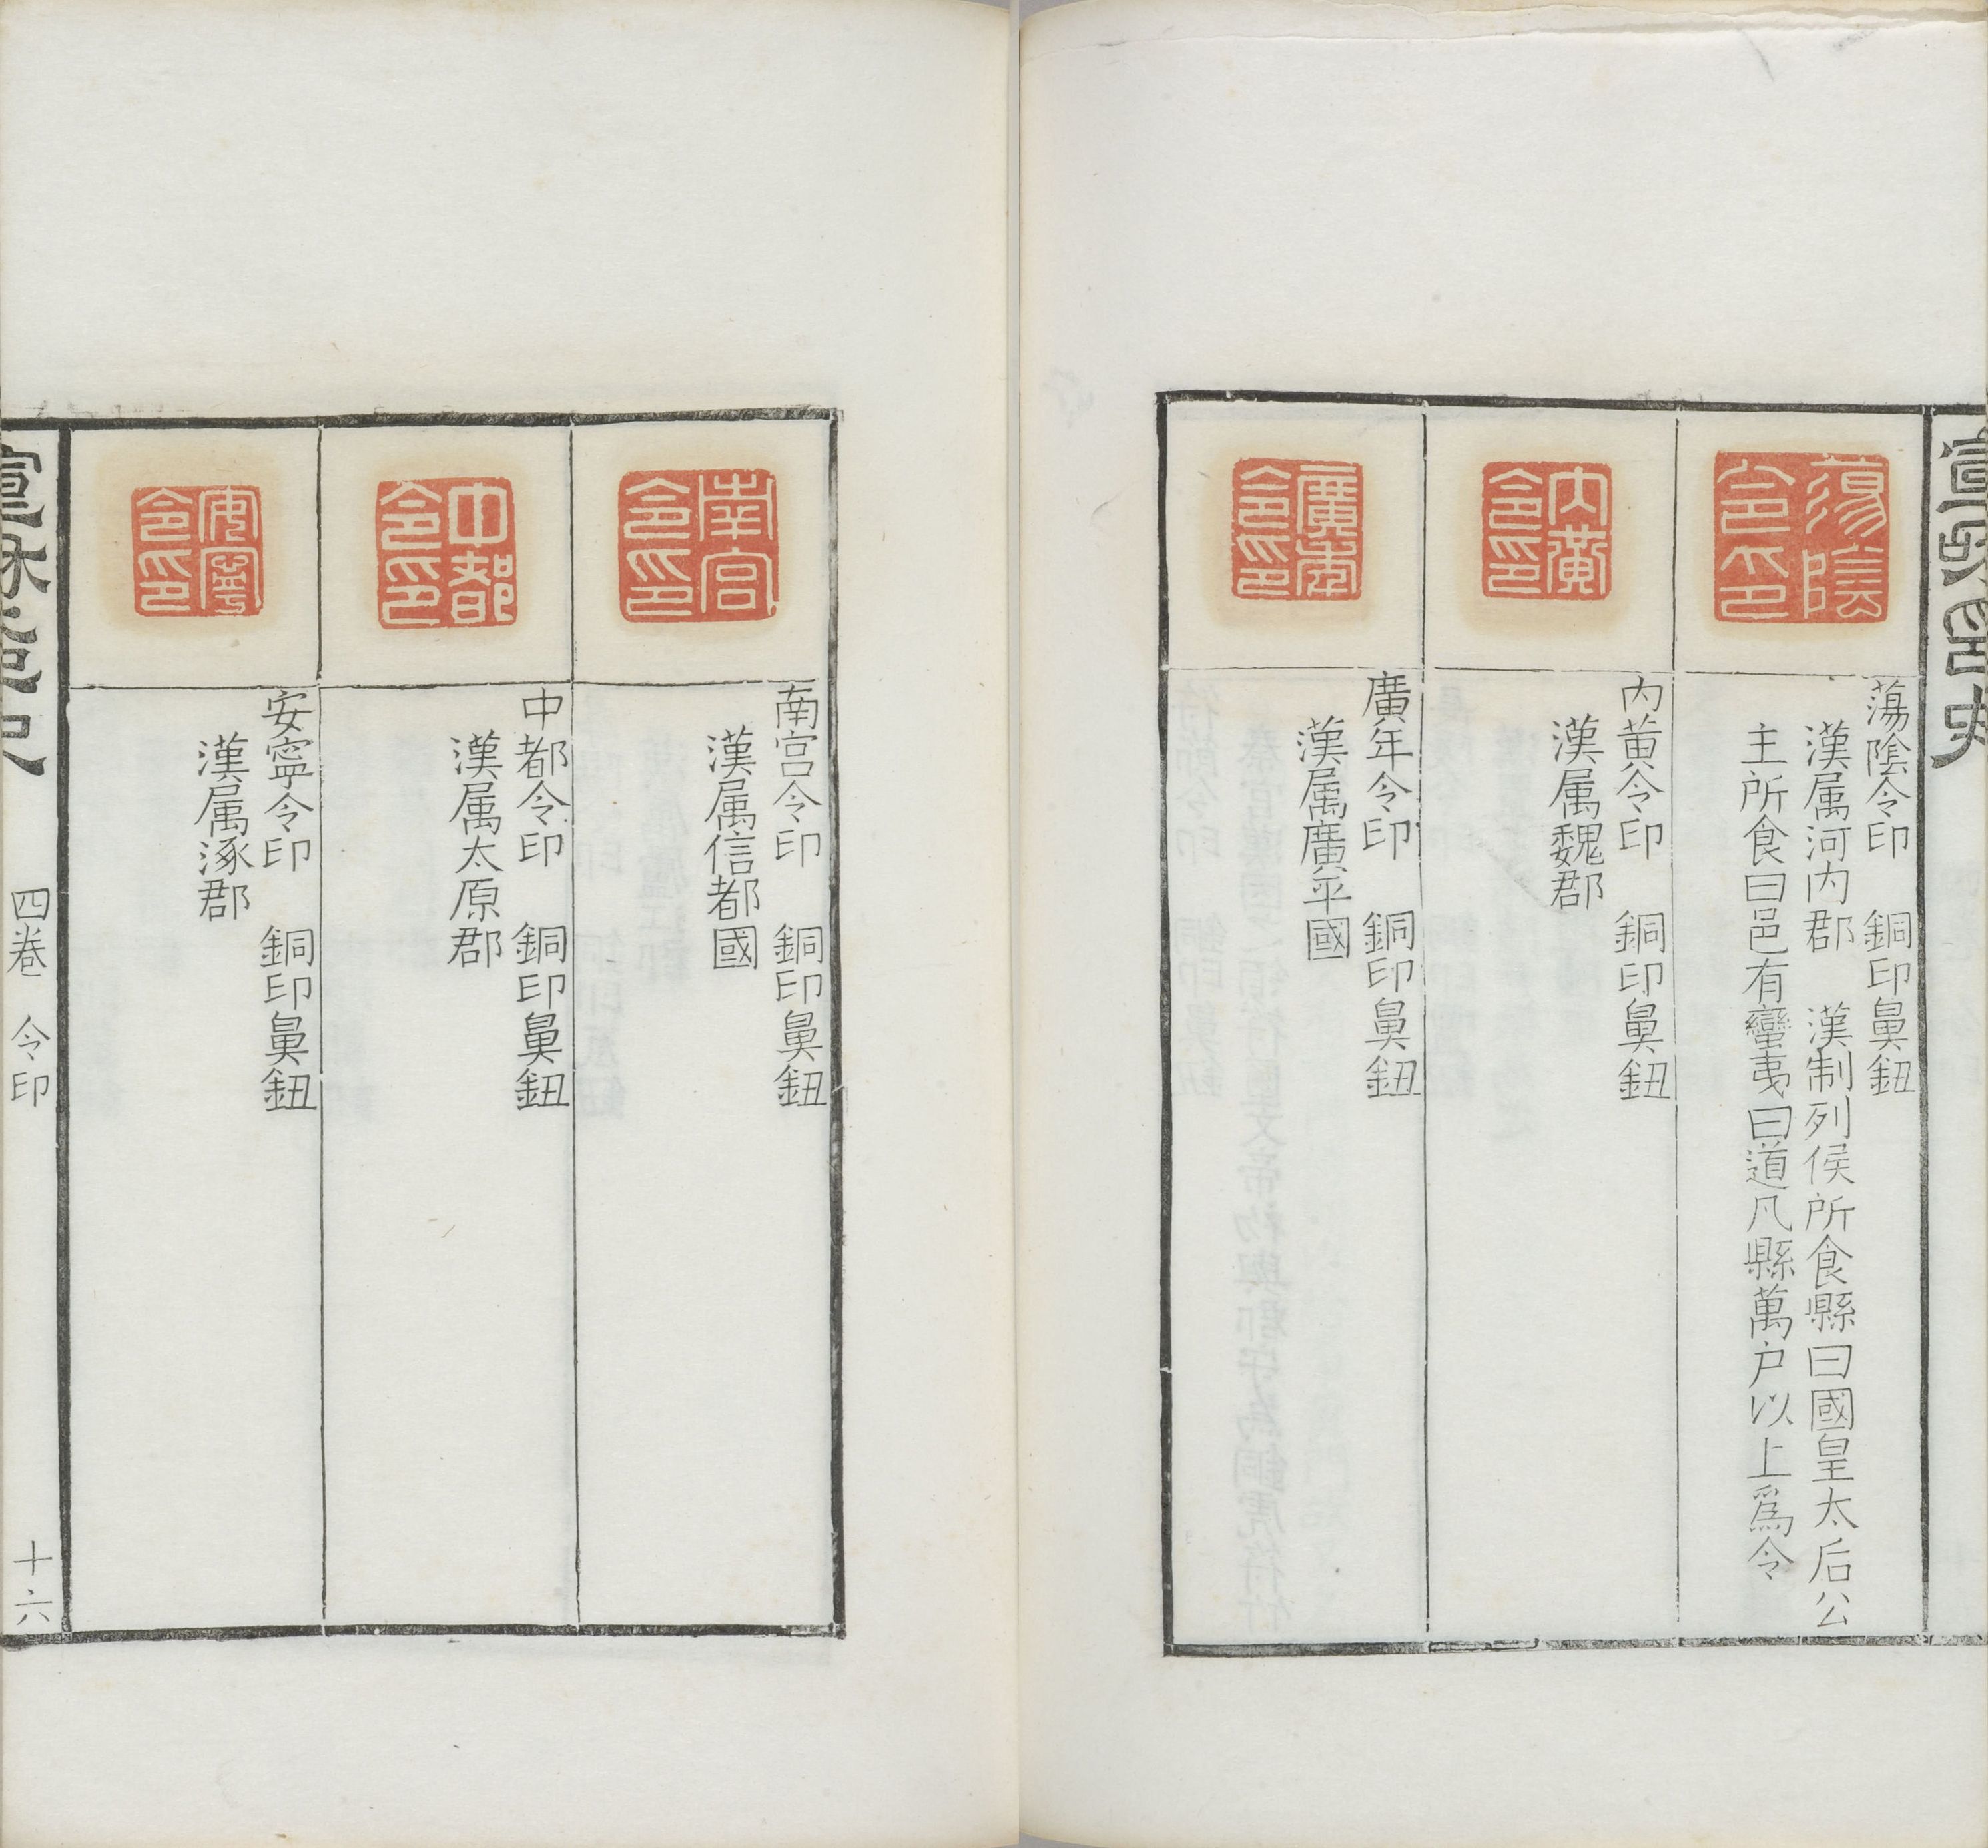 宣和印史
蕩陰令印
蕩陰令印　銅印鼻鈕
漢属河内郡　漢制列侯所食縣曰國皇太后公
主所食曰邑有蠻夷曰道凡縣萬户以上爲令
内黄令印
内黄令印　銅印鼻鈕
漢属魏郡
廣年令印
廣年令印　銅印鼻鈕
漢属廣平國
南宫令印
南宫令印　銅印鼻鈕
漢属信都國
中都令印
中都令印　銅印鼻鈕
漢属太原郡
安寧令印
安寧令印　銅印鼻鈕
漢属涿郡
宣和印史　四卷　令印　十六